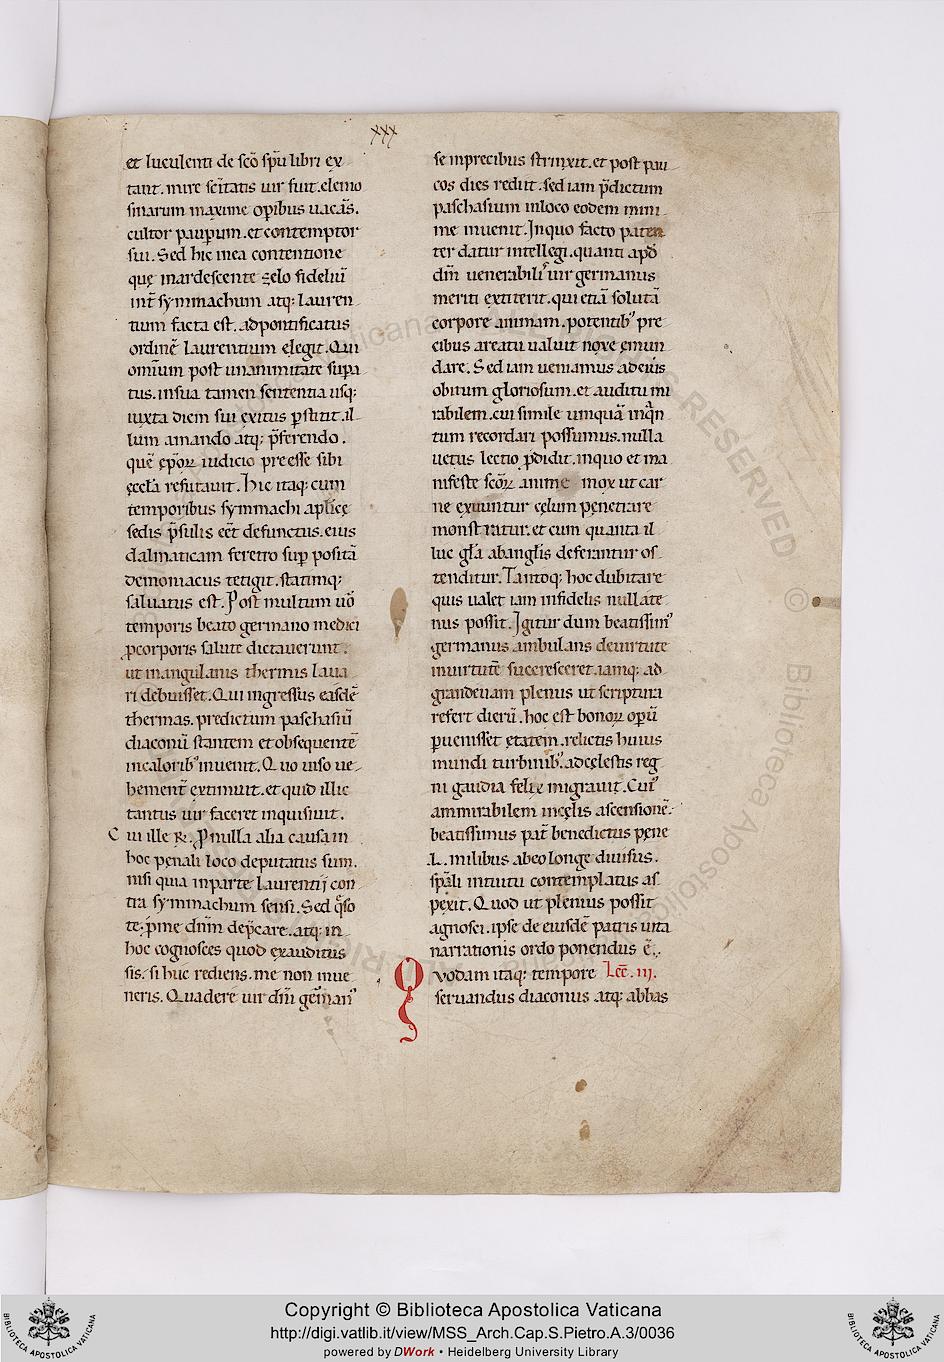 xxx
et luculenti de sc̄o sp̄u libri ex
tant. mire sc̄itatis uir fuit. elemo
sinarum maxime op̄ibus uacās.
cultor paup̄um. et contemptor
sui. Sed hic inea contentione
quę inardescente zelo fideliū
int̄ symmachum atq; lauren
tium facta est. adpontificatus
ordinē laurentium elegit. Qui
omnium post unanimitate supa
tus. insua tamen sententia usq;
iuxta diem sui exitus p̄stitit. il
lum amando atq; p̄ferendo.
quē ep̄oꝝ iudicio preesse sibi
ęccl̄a refutauit. Hic itaq; cum
temporibus symmachi ap̄licę
sedis p̄sulis eēt defunctus. eius
dalmaticam feretro sup̄ positā
demoniacus tetigit. statimq;
saluatus est. Post multum uō
temporis beato germano medici
ꝓcorporis salute dictauerunt.
ut inangulanis thermis laua
ri debuisset. Qui ingressus easdē
thermas. predictum paschasiū
diaconū stantem et obsequentē
incaloribꝰ inuenit. Quo uiso ue
hement̄ extimuit. et quid illic
tantus uir faceret inquisiuit.
Cui ille ꝶ. Pnulla alia causa in
hoc penali loco deputatus sum.
nisi quia inparte laurentij con
tra symmachum sensi. Sed q̄so
te; p̄me dn̄m dep̄care. atq; in
hoc cognosces quod exauditus
sis. si huc rediens. me non inue
neris. Quadere uir dn̄i germanꝰ
se inprecibus strinxit. et post pau
cos dies rediit. sed iam p̄dictum
paschasium inloco eodem mini
me inuenit. Inquo facto paten
ter datur intellegi. quanti apđ
dm̄ uenerabilis uir germanus
meriti extiterit. qui etiā solutā
corpore animam. potentibꝰ pre
cibus areatu ualuit noxe emun
dare. Sed iam ueniamus ad eius
obitum gloriosum. et auditu mi
rabilem. cui simile umquā inq̄n
tum recordari possumus. nulla
uetus lectio p̄didit. inquo et ma
nifeste sc̄oꝝ anime mox ut car
ne exuuntur cęlum penetrare
monstratur. et cum quanta il
luc gl̄a abangl̄is deferantur os
tenditur. Tantoq; hoc dubitare
quis ualet iam infidelis nullate
nus possit. Igitur dum beatissimꝰ
germanus ambulans deuirtute
inuirtutē succresceret. iamq; ad
grandeuam plenus ut scriptura
refert dierū. hoc est bonoꝝ op̄ū
p̄uenisset ętatem. relictis huius
mundi turbinibꝰ. adcęlestis reg
ni gaudia felix migrauit. Cuiꝰ
ammirabilem incęlis ascensionē.
beatissimus pat̄ benedictus pene
.L. milibus abeo longe diuisus.
sp̄ali intuitu contemplatus as
pexit. Quod ut plenius possit
agnosci. ipse de eiusdē patris uita
narrationis ordo ponendus ē.
Quodam itaq; tempore Lec̄. iii.
seruandus diaconus atq; abbas
Copyright © Biblioteca Apostolica Vaticana
http://digi.vatlib.it/view/MSS_Arch.Cap.S.Pietro.A.3/0036
powered by DWork • Heidelberg University Library
BIBLIOTECA APOSTOLICA VATICANA
BIBLIOTECA APOSTOLICA VATICANA